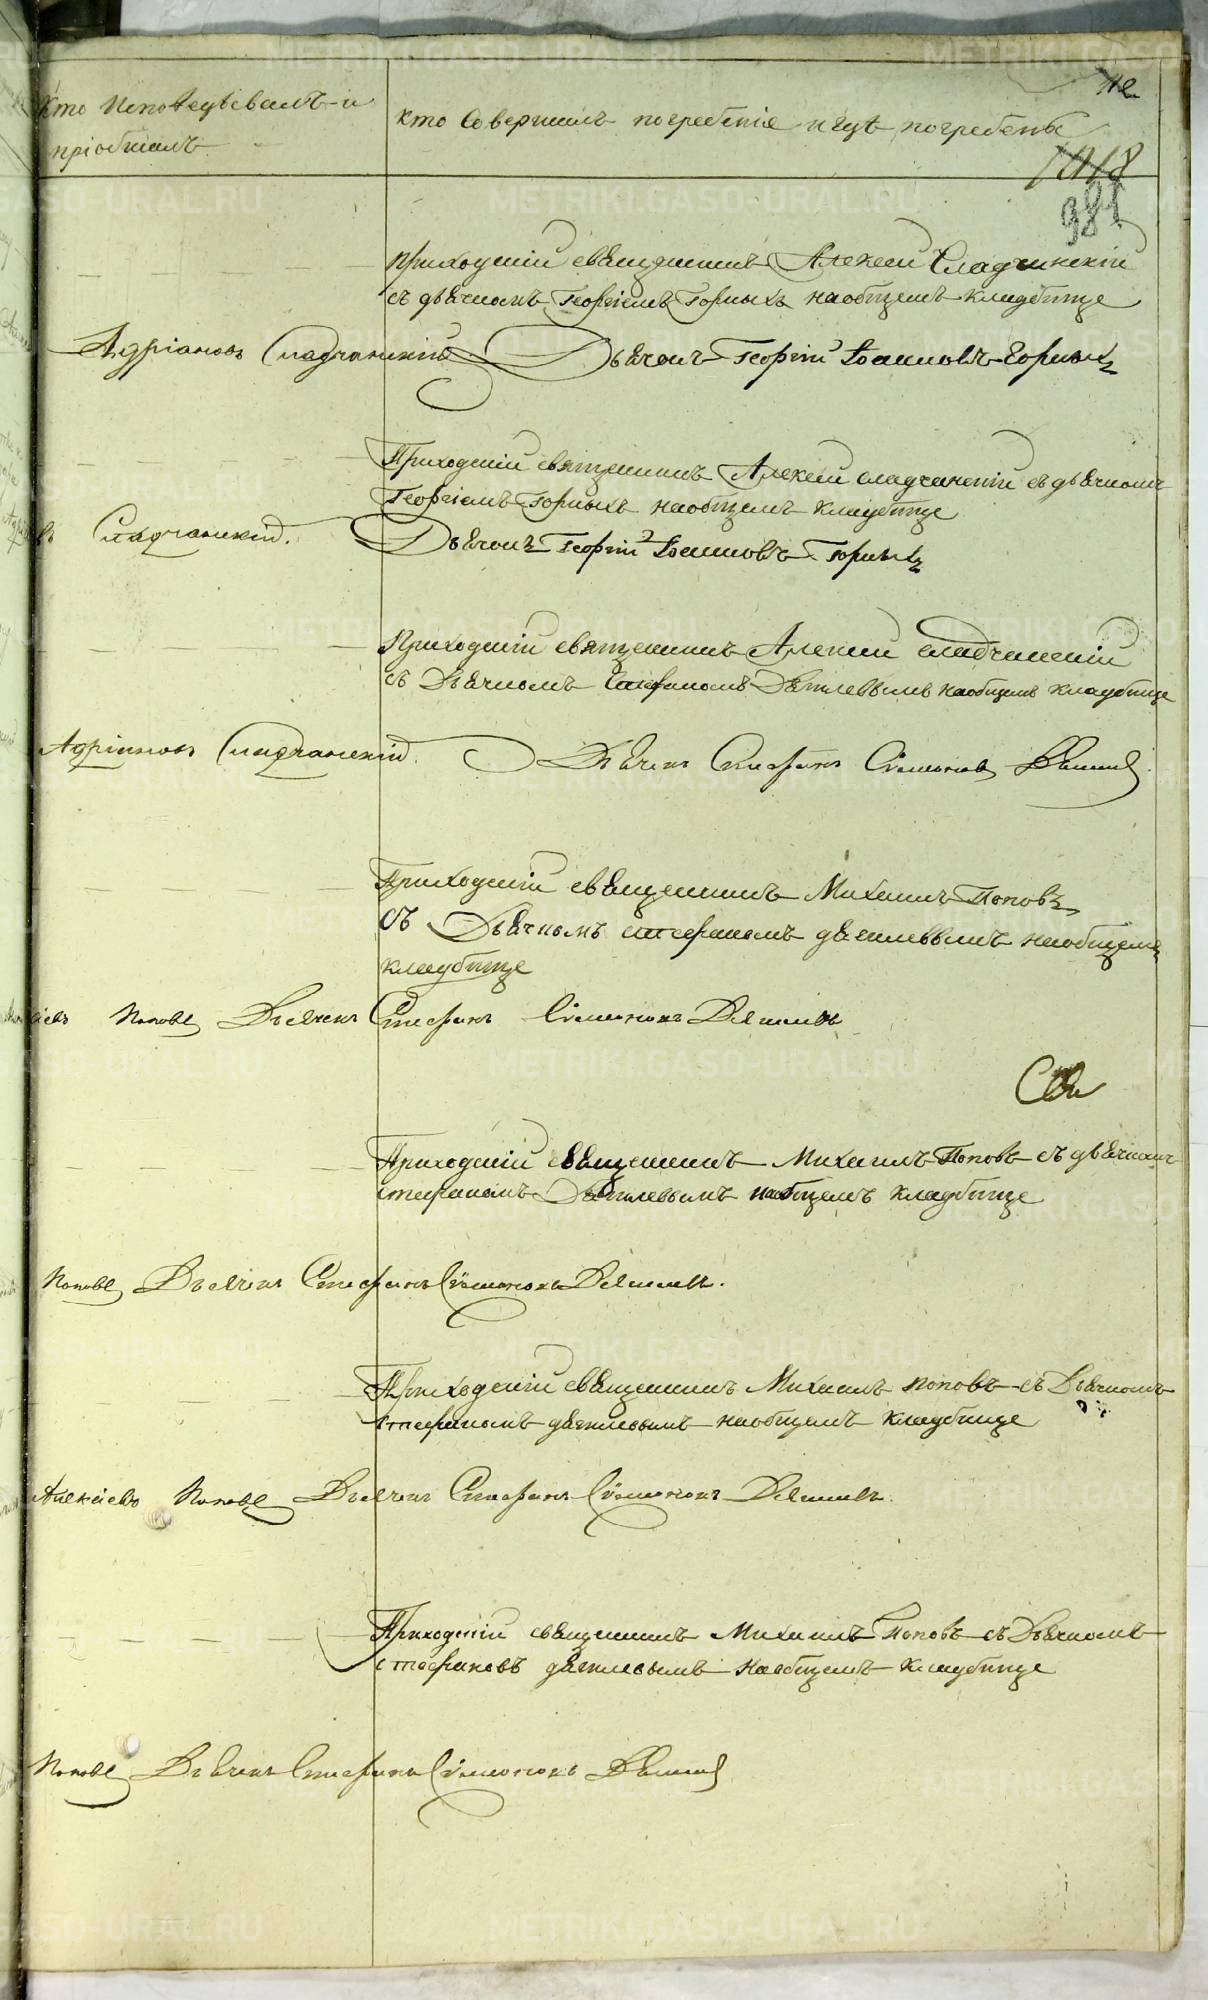 112
Кто Исповедывалъ и
пріобщалъ
Кто Совершилъ погребеніе и где погребены
1018
981
Приходскій священникъ Алексей Сладчинскій
съ дьячкомъ Георгіемъ Горныхъ на общемъ кладбище
Адріановъ Сладчанскій Дьячокъ Георгій Іоанновъ Горныхъ
Приходскій священникъ Алексей Сладчанскій съ дьячкомъ
Георгіемъ Горныхъ на общемъ кладбище
въ Сладчанскій. Дьячокъ Георгій Іоанновъ Горныхъ
Приходскій священникъ Алексей Сладчанскій
съ Дьячкомъ Стефаномъ на общемъ кладбище
Адріановъ Сладчанскій Дьячекъ Стефанъ Сѵмоновъ
Приходскій священникъ Михаилъ Поповъ
съ Дьячкомъ Стефаномъ на общемъ
кладбище
Поповъ Дьячекъ Стефанъ Сѵмоновъ
Приходскій священникъ Михаилъ Поповъ съ дьячкомъ
Стефаномъ на общемъ кладбище
Поповъ Дьячекъ Стефанъ Сѵмоновъ
Приходскій священникъ Михаилъ Поповъ съ Дьячкомъ
Стефаномъ на общемъ кладбище
Алексіевъ Поповъ Дьячекъ Стефанъ Сѵмоновъ
Приходскій священникъ Михаилъ Поповъ съ Дьячкомъ
Стефановъ на общемъ кладбище
Поповъ Дьячекъ Стефанъ Сѵмоновъ